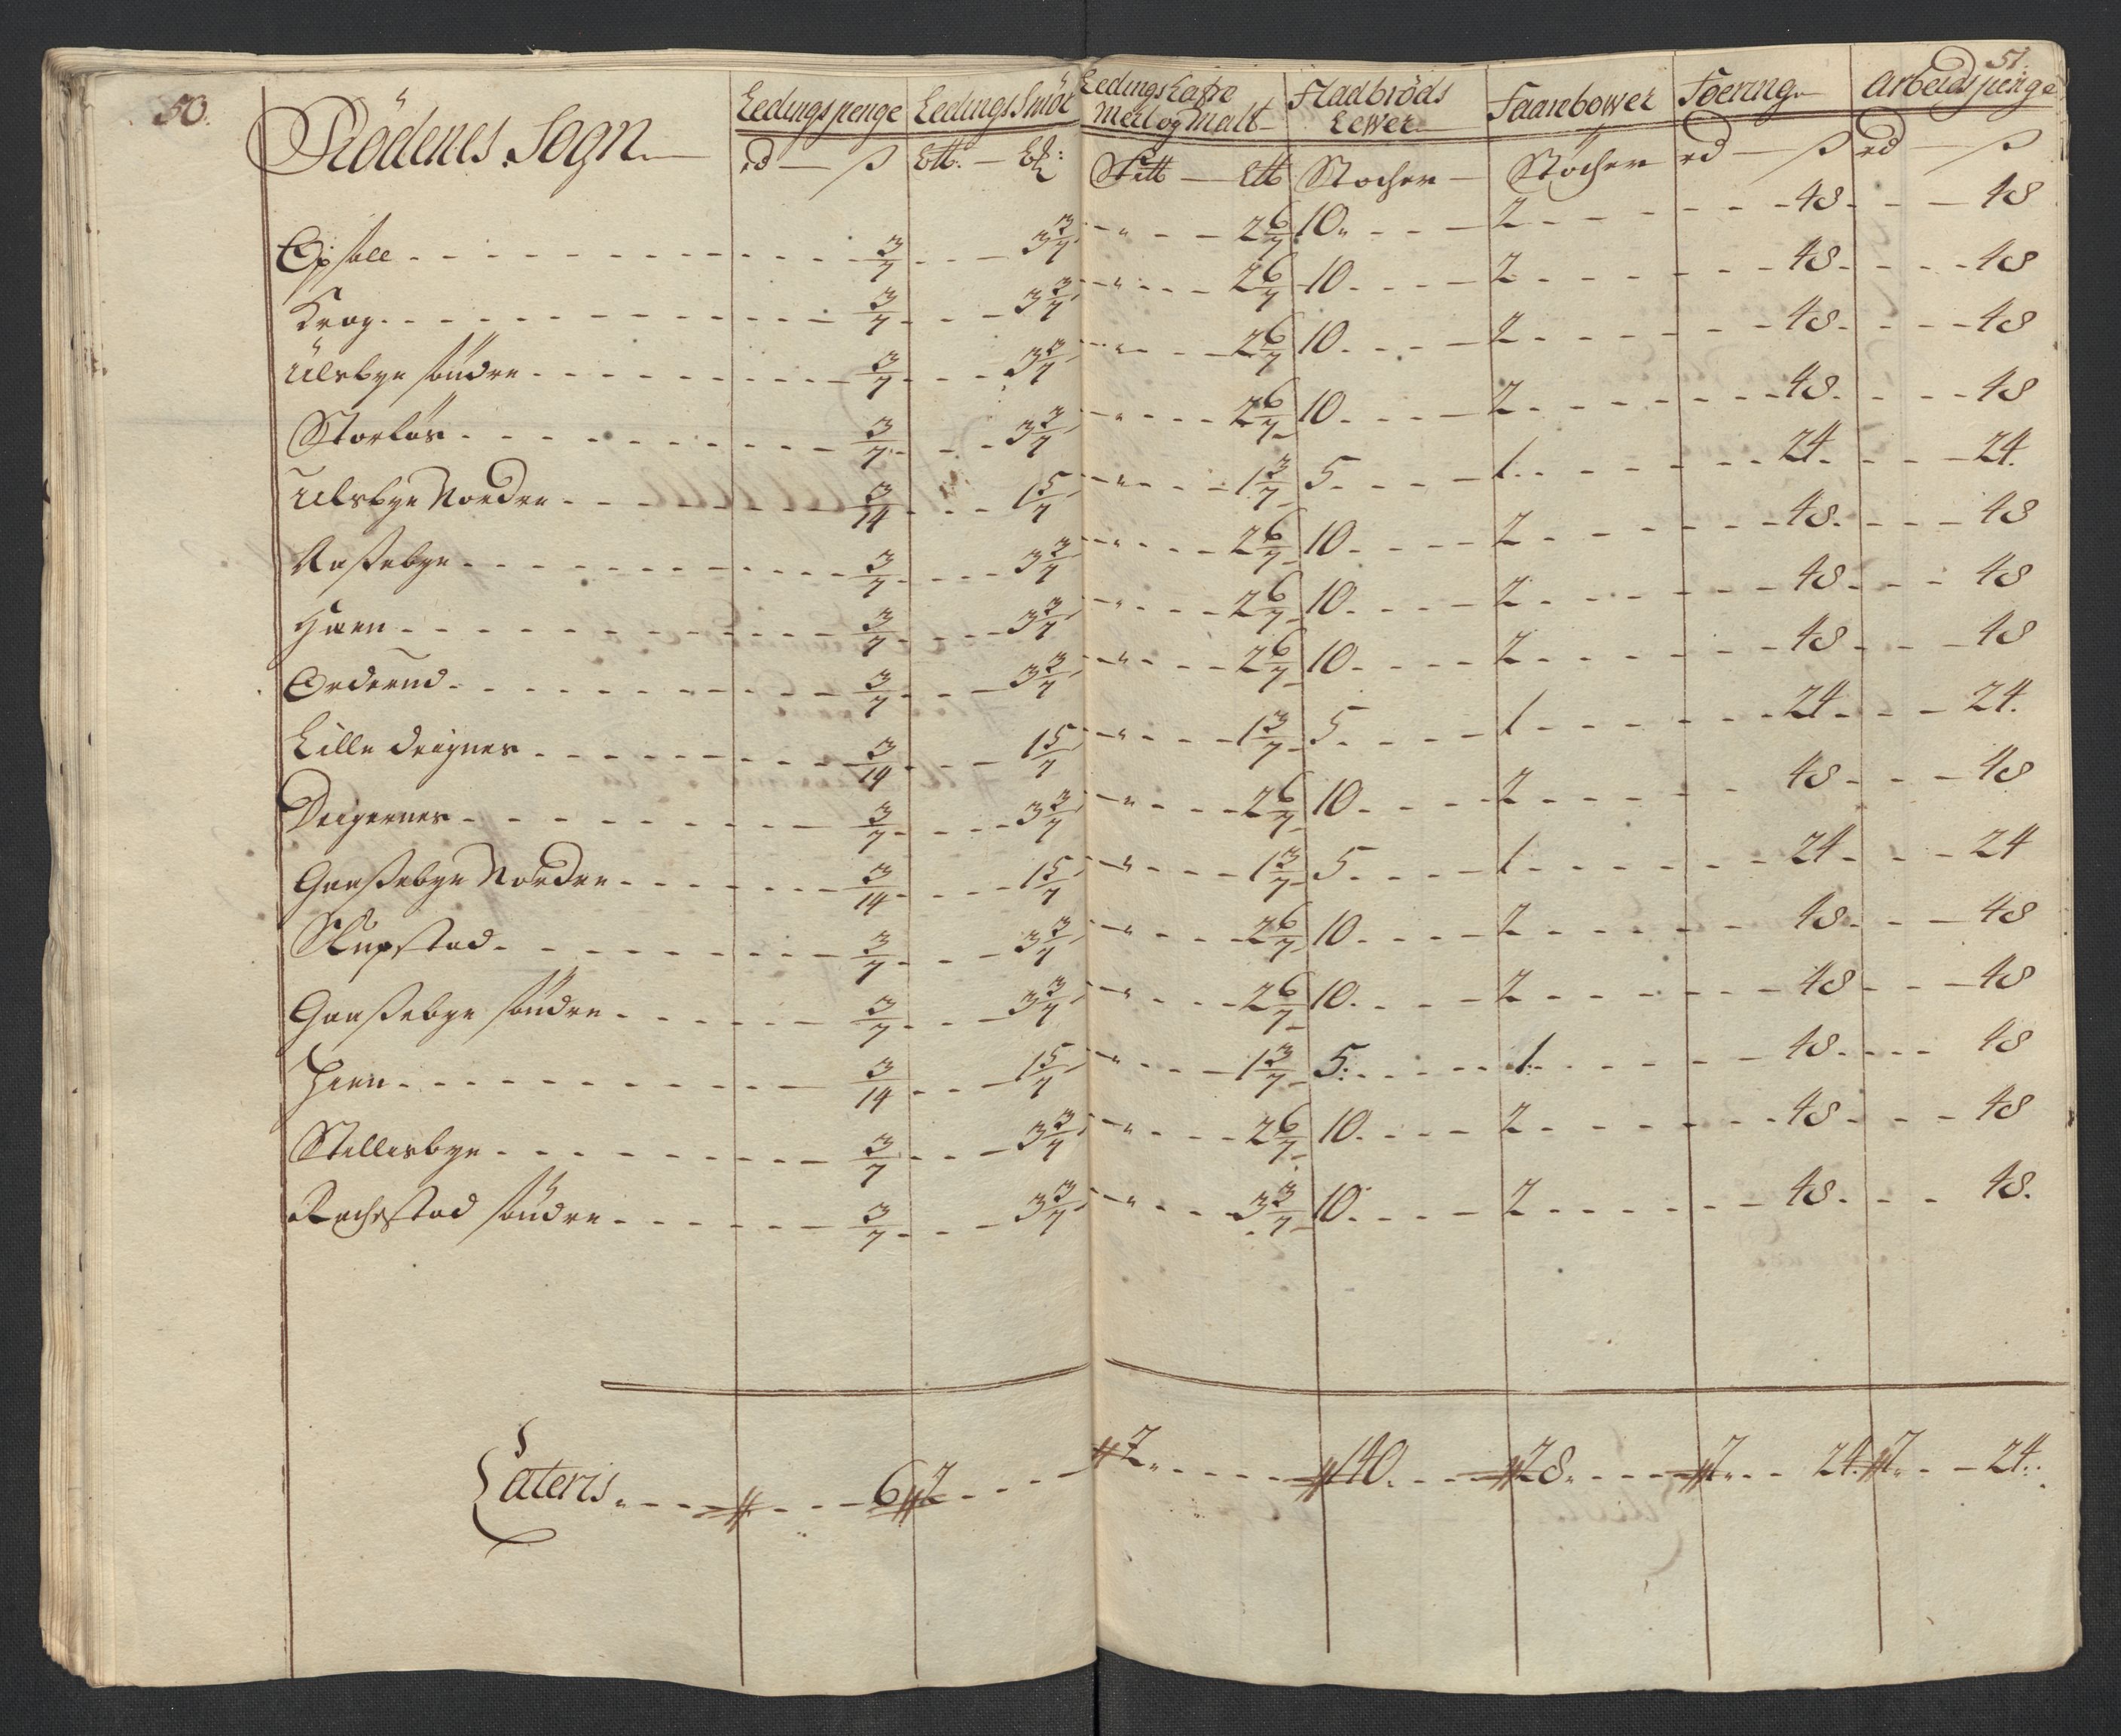 50. 51.
Rödenes Sogn Ledingspenge Ledings Smör Ledings Kafre Meel og Malt Fladbröds Lewer Faarebower Foering Arbeidspenge
rd ß Sett Ltt Stocher Stocher rd ß rd ß
Opsall 3/7 3 3/7 " 2 6/7 10 2 48 48
Krog 3/7 3 3/7 " 2 6/7 10 2 48 48
Ulsbye söndre 3/7 3 3/7 " 2 6/7 10 2 48 48
Storløs 3/7 3 3/7 " 2 6/7 10 2 48 48
Ulsbye Nordre 3/14 1 5/7 " 1 3/7 5 1 24 24
Rassebye 3/7 3 3/7 " 2 6/7 10 2 48 48
Haen 3/7 3 3/7 " 2 6/7 10 2 48 48
Orderud 3/7 3 3/7 " 2 6/7 10 2 48 48
Lille deignes 3/14 1 5/7 " 1 3/7 5 1 24 24
Deigernes 3/7 3 3/7 " 2 6/7 10 2 48 48
Gaassebye Nordre 3/14 1 5/7 " 1 3/7 5 1 24 24
3/7 3 3/7 " 2 6/7 10 2 48 48
Gaassebye söndre 3/7 3 3/7 " 2 6/7 10 2 48 48
Heen 3/14 1 5/7 " 1 3/7 5 1 48 48
Stillesbye 3/7 3 3/7 " 2 6/7 10 2 48 48
Rochestad söndre 3/7 3 3/7 " 3 3/7 10 2 48 48
Lateris 6 2 2 140 28 7 24 7 24